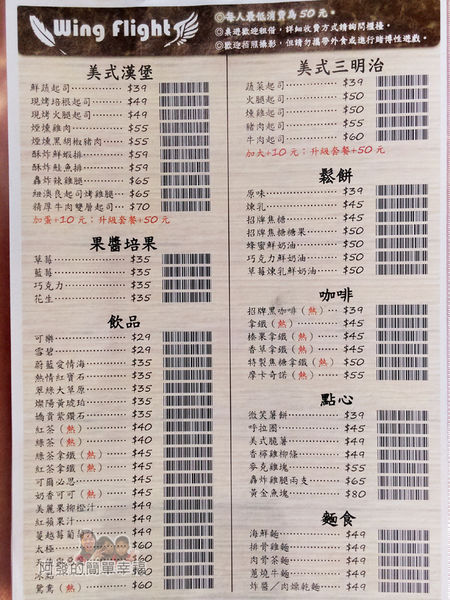 Wing Flight
◎每人最低消費為 50 元。
◎桌遊歡迎租借,詳細收費方式請詢問櫃檯。
◎歡迎拍照攝影,但請勿攜帶外食或進行賭博性遊戲。
美式漢堡
鮮蔬起司 $39
現烤培根起司 $49
現烤火腿起司 $49
煙燻雞肉 $55
煙燻黑胡椒豬肉 $55
酥炸鮮蝦排 $59
酥炸鮭魚排 $59
轟炸辣雞腿 $65
紐澳良起司烤雞腿 $65
精厚牛肉雙層起司 $70
加蛋+10 元;升級套餐+50 元
果醬培果
草莓 $35
藍莓 $35
巧克力 $35
花生 $35
飲品
可樂 $29
雪碧 $29
蔚藍愛情海 $35
熱情紅寶石 $35
翠綠大草原 $35
燦陽黃琥珀 $35
嬌貴紫鑽石 $35
紅茶(熱) $40
綠茶(熱) $40
綠茶拿鐵(熱) $45
紅茶拿鐵(熱) $45
可爾必思 $45
奶香可可(熱) $45
美麗果柳橙汁 $49
紅蘋果汁 $49
蔓越莓葡萄 $49
太極 $60
$60
冰 $60
鴛鴦(熱) $60
美式三明治
蔬菜起司 $39
火腿起司 $50
燻雞起司 $50
豬肉起司 $50
牛肉起司 $60
加大+10 元;升級套餐+50 元
鬆餅
原味 $39
煉乳 $45
招牌焦糖 $45
招牌焦糖糖果 $50
蜂蜜鮮奶油 $50
巧克力鮮奶油 $50
草莓煉乳鮮奶油 $50
咖啡
招牌黑咖啡(熱) $39
拿鐵(熱) $45
榛果拿鐵(熱) $45
香草拿鐵(熱) $45
特製焦糖拿鐵(熱) $50
摩卡奇諾(熱) $55
點心
微笑薯餅 $39
呼拉圈 $45
美式脆薯 $49
香檸雞柳條 $49
麥克雞塊 $55
轟炸雞腿兩支 $65
黃金魚塊 $80
麵食
海鮮麵 $49
排骨雞麵 $49
肉骨茶麵 $49
蔥燒牛麵 $49
炸醬/肉燥乾麵 $49
阿發的簡單幸福